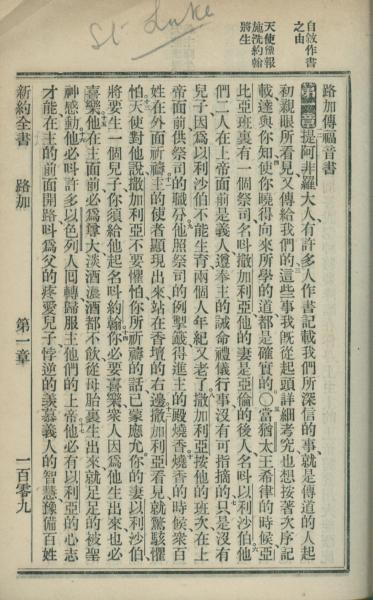 St Luke
自敘作書
之由
天使豫報
施洗約翰
將生
路加傳福音書
提阿非羅大人、有許多人作書記載我們所深信的事、就是傳道的人起
初親眼所看見又傳給我們的這些事、我既從起頭詳細考究也想按著次序記
載達與你知、使你曉得向來所學的道都是確實的、〇當猶太王希律的時候亞
比亞班裏有一個祭司名呌撒加利亞他的妻是亞倫的後人名呌以利沙伯他
們二人在上帝面前是義人遵奉主的誡命禮儀行事沒有可指摘的只是沒有
兒子因為以利沙伯不能生育兩個人年紀又老了、撒加利亞按他的班次在上
帝面前供祭司的職分他照祭司的例掣籤得進主的殿燒香燒香的時候衆百
姓在外面祈禱主的使者顯現出來站在香壇的右邊撒加利亞看見就驚駭懼
怕天使對他說撒加利亞不要懼怕你所祈禱的話已蒙應允你的妻以利沙伯
將要生一個兒子你須給他起名呌約翰你必要喜樂衆人因為他生出來也必
喜樂他在主面前必為尊大淡酒濃酒都不飲從母胎裏生出來就足足的被聖
神感動他必呌許多以色列人囘轉歸服主他們的上帝他必有以利亞的心志
才能在主的前面開路呌為父的疼愛兒子悖逆的羨慕義人的智慧豫備百姓
新約全書　路加　第一章　一百零九